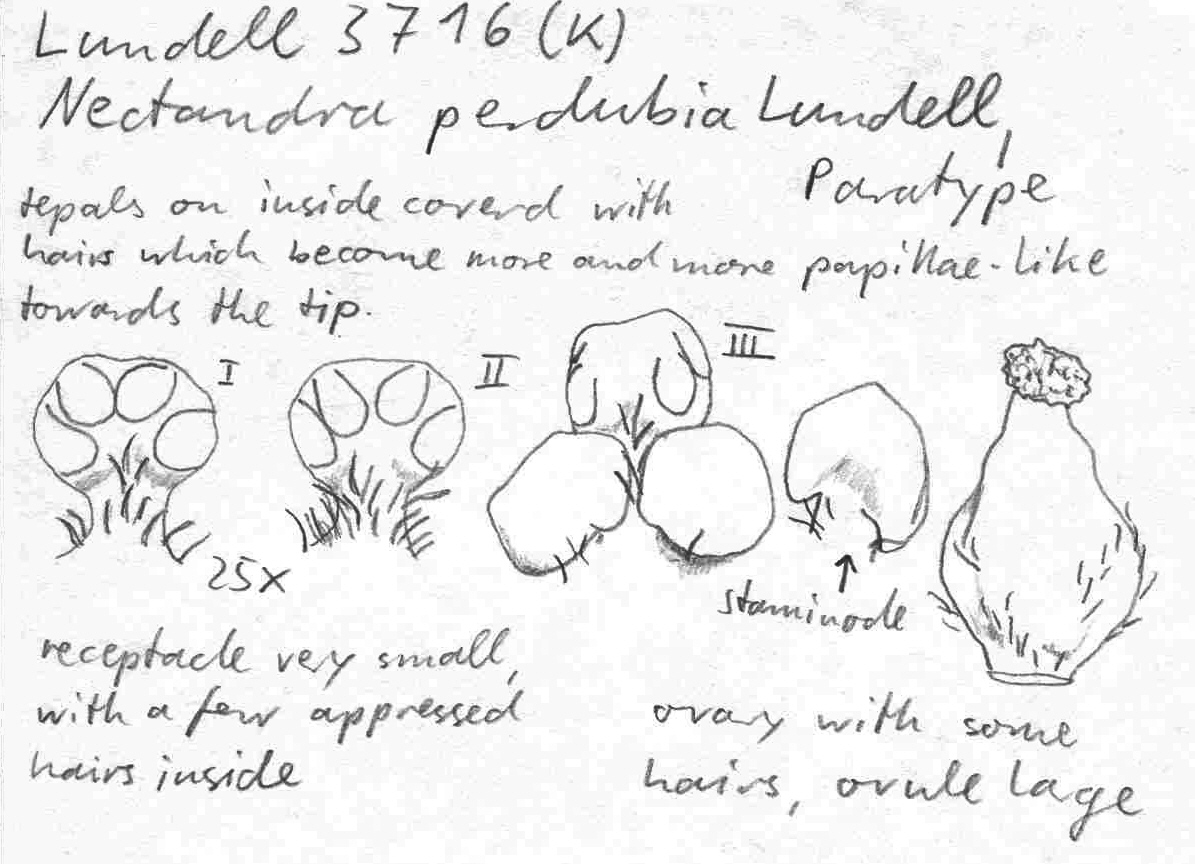 Lundell 3716 (K)
Nectandra perdubia Lundell,
Paratype
tepals on inside coverd with
hairs which become more and more papillae-like
towards the tip.
I
II
III
25x
staminode
receptacle very small,
with a few appressed
hairs inside
ovary with some
hairs, ovule lage